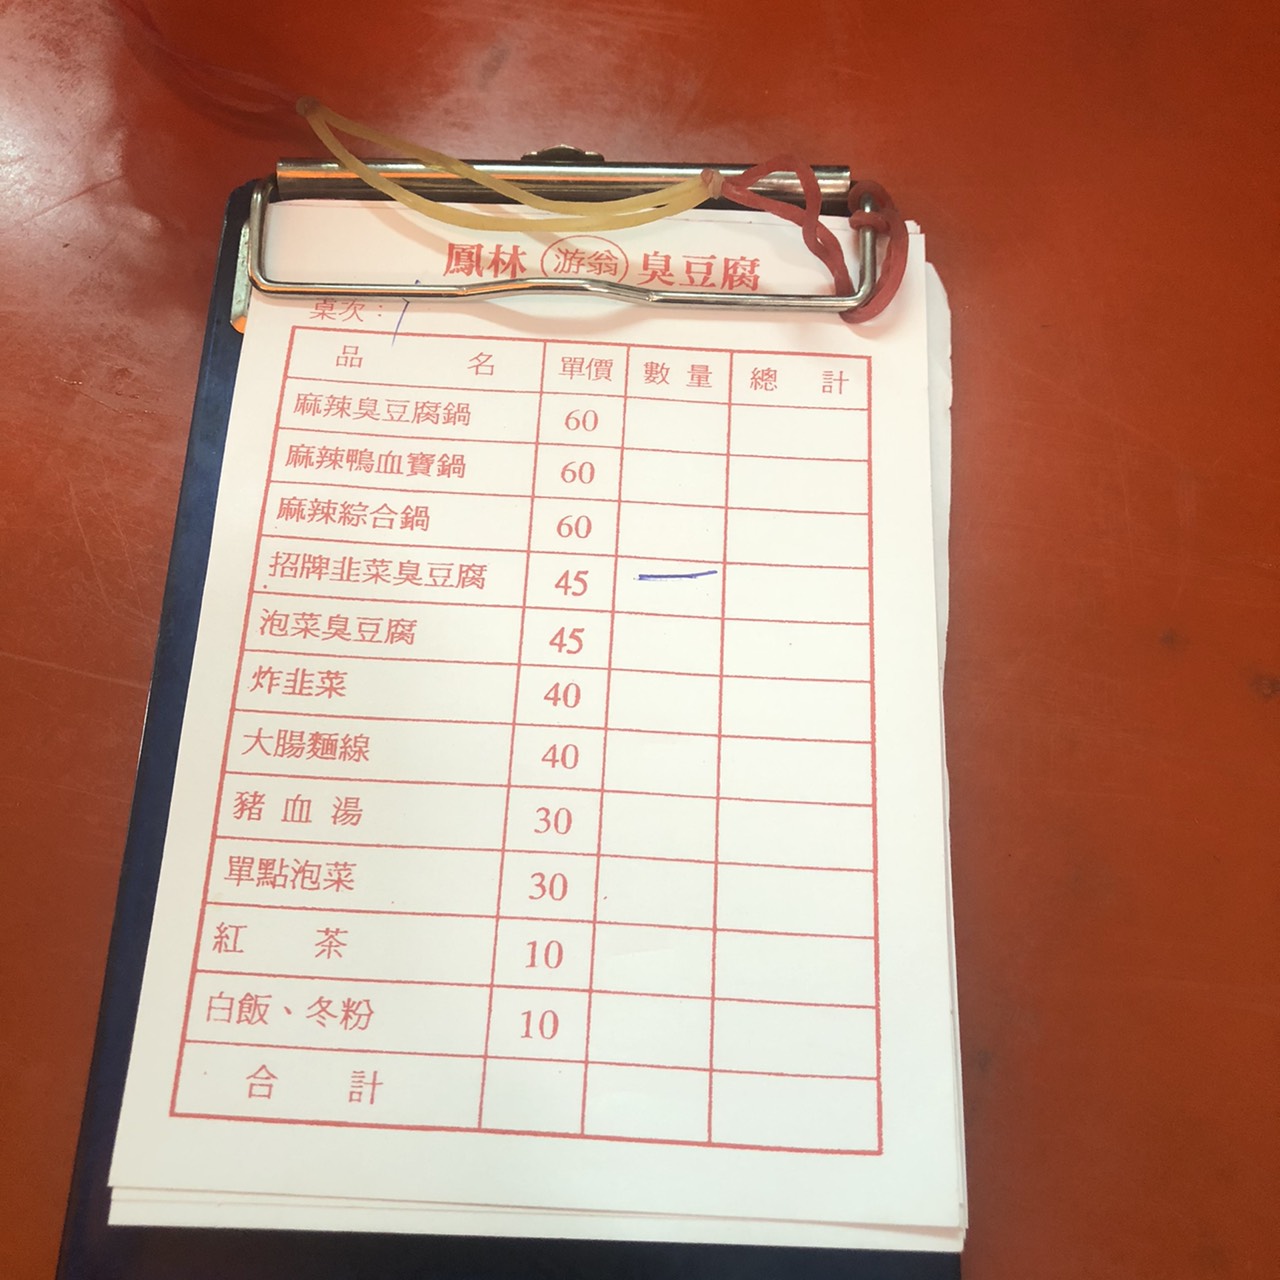 鳳林 游翁 臭豆腐
桌次：1
品 名 單價 數量 總計
麻辣臭豆腐鍋 60
麻辣鴨血寶鍋 60
麻辣綜合鍋 60
招牌韭菜臭豆腐 45 一
泡菜臭豆腐 45
炸韭菜 40
大腸麵線 40
豬血湯 30
單點泡菜 30
紅 茶 10
白飯、冬粉 10
合 計